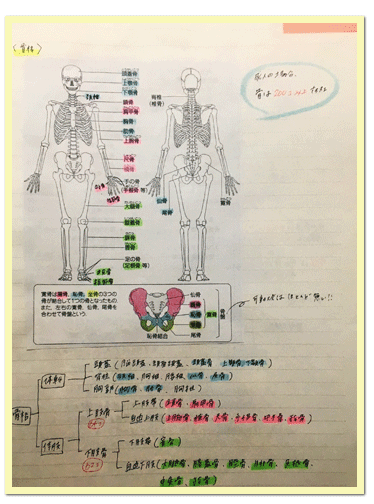 (骨格)
成人の場合、
骨は200
頭蓋骨
上顎骨
下顎骨
鎖骨
肩甲骨
胸骨
肋骨
上腕骨
尺骨
手の骨
(手根骨 等)
大腿骨
膝蓋骨
腓骨
脛骨
足の骨
(足根骨 等)
脊椎
(椎骨)
仙骨
尾骨
寛骨
寛骨は腸骨、恥骨、坐骨の3つの
骨が結合して1つの骨となったもの。
また、左右の寛骨、仙骨、尾骨を
合わせて骨盤という。
仏骨
腸骨
恥骨
坐骨
寛骨
骨盤
尾骨
恥骨結合
可動性はほとんど無い!!
骨格
体幹
頭蓋
上顎骨・下顎骨)
脊柱(頸椎、胸椎、腰椎、仙骨、尾骨)
胸郭(胸骨、肋骨、胸椎)
体肢
上肢骨
上肢帯(鎖骨、肩甲骨)
自由上肢(上腕骨、橈骨、尺骨、手根骨、中手骨、指骨)
下肢骨
下肢帯(寛骨)
自由下肢(大腿骨、膝蓋骨、脛骨、腓骨、足根骨、
中足骨、趾骨)